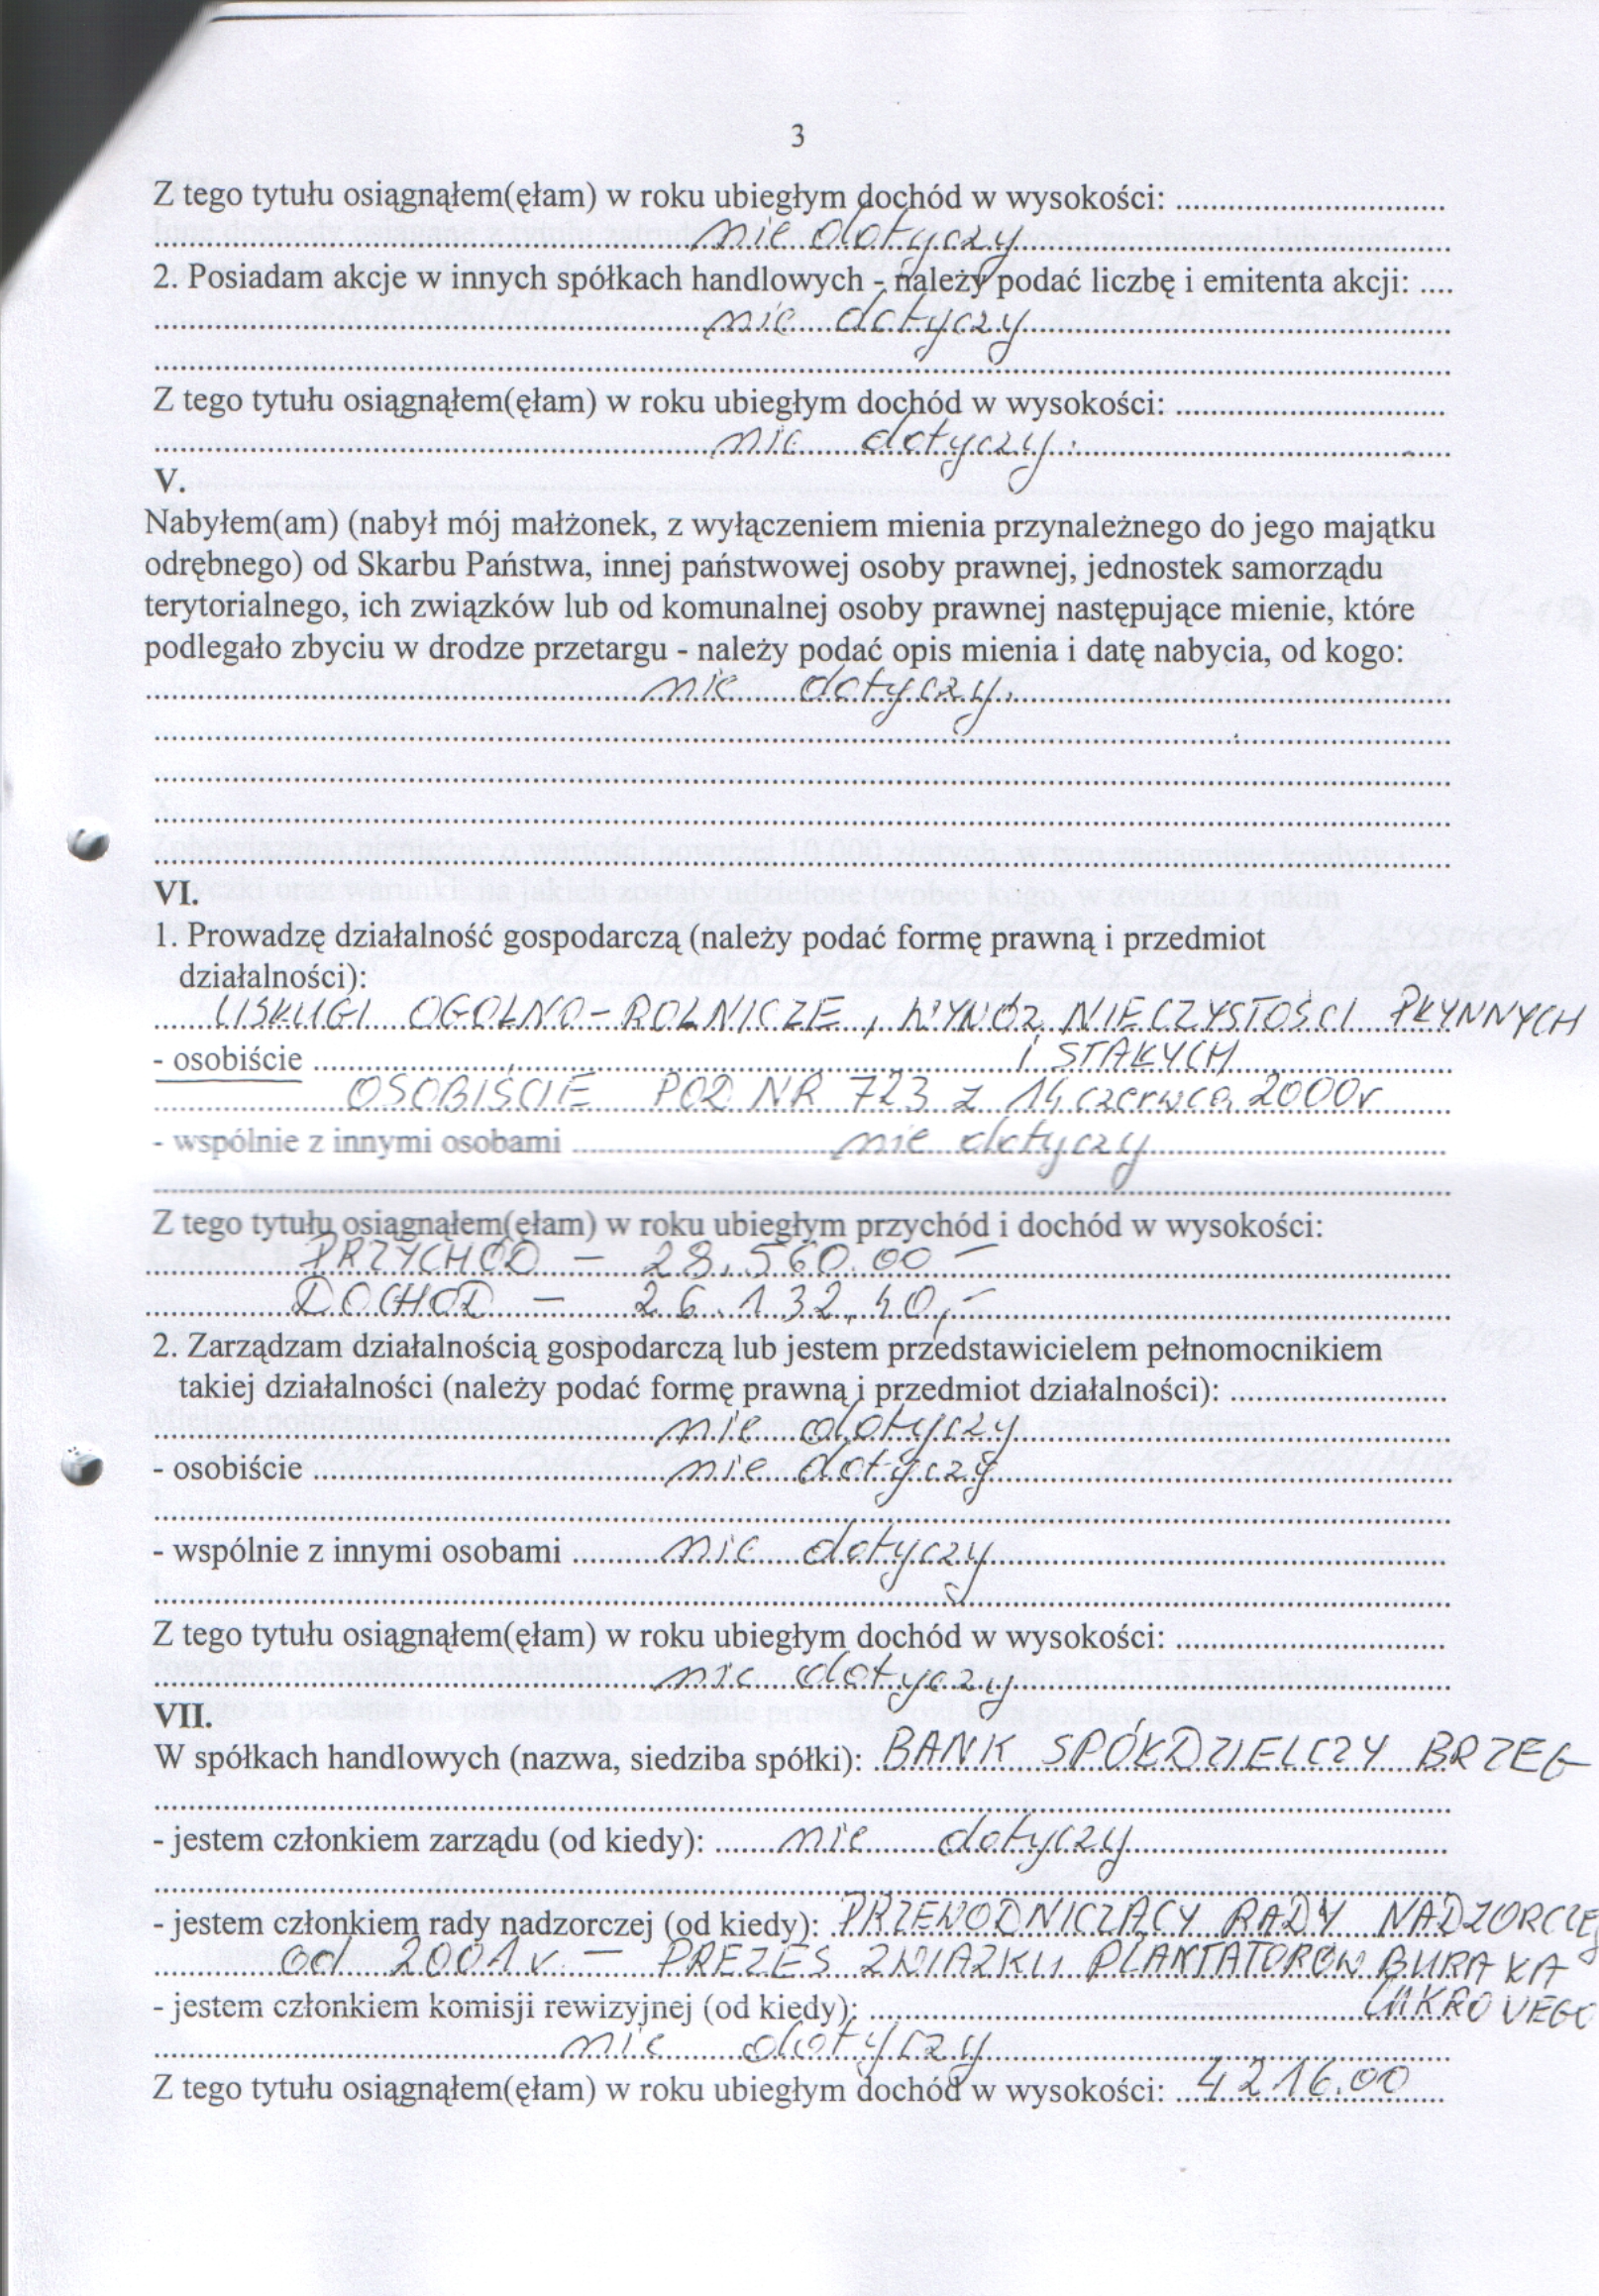 3
Z tego tytułu osiągnąłem(ęłam) w roku ubiegłym dochód w wysokości: ..............................
nie dotyczy
2. Posiadam akcje w innych spółkach handlowych - należy podać liczbę i emitenta akcji: ....
nie dotyczy
Z tego tytułu osiągnąłem(ęłam) w roku ubiegłym dochód w wysokości: ..............................
nie dotyczy.
V.
Nabyłem(am) (nabył mój małżonek, z wyłączeniem mienia przynależnego do jego majątku
odrębnego) od Skarbu Państwa, innej państwowej osoby prawnej, jednostek samorządu
terytorialnego, ich związków lub od komunalnej osoby prawnej następujące mienie, które
podlegało zbyciu w drodze przetargu - należy podać opis mienia i datę nabycia, od kogo:
nie dotyczy.
VI.
1. Prowadzę działalność gospodarczą (należy podać formę prawną i przedmiot
działalności):
USŁUGI OGOLNO-ROLNICZE, WYWÓZ NIECZYSTOŚCI PŁYNNYCH
- osobiście I STAŁYCH
OSOBIŚCIE POZ NR 723 z 14 czerwca 2000r
- wspólnie z innymi osobami nie dotyczy
Z tego tytułu osiągnąłem(ęłam) w roku ubiegłym przychód i dochód w wysokości:
PRZYCHÓD - 28.560.00 -
DOCHÓD - 26.132,40,-
2. Zarządzam działalnością gospodarczą lub jestem przedstawicielem pełnomocnikiem
takiej działalności (należy podać formę prawną i przedmiot działalności): ........................
nie dotyczy
- osobiście nie dotyczy
- wspólnie z innymi osobami nie dotyczy
Z tego tytułu osiągnąłem(ęłam) w roku ubiegłym dochód w wysokości: ..............................
nie dotyczy
VII.
W spółkach handlowych (nazwa, siedziba spółki): BANK SPÓŁDZIELCZY BRZEG
- jestem członkiem zarządu (od kiedy): nie dotyczy
- jestem członkiem rady nadzorczej (od kiedy): PRZEWODNICZĄCY RADY NADZORCZEJ
od 2001r - PREZES ZWIĄZKU PLANTATORÓW BURAKA
- jestem członkiem komisji rewizyjnej (od kiedy): CUKROWEGO
nie dotyczy
Z tego tytułu osiągnąłem(ęłam) w roku ubiegłym dochód w wysokości: 4216.00